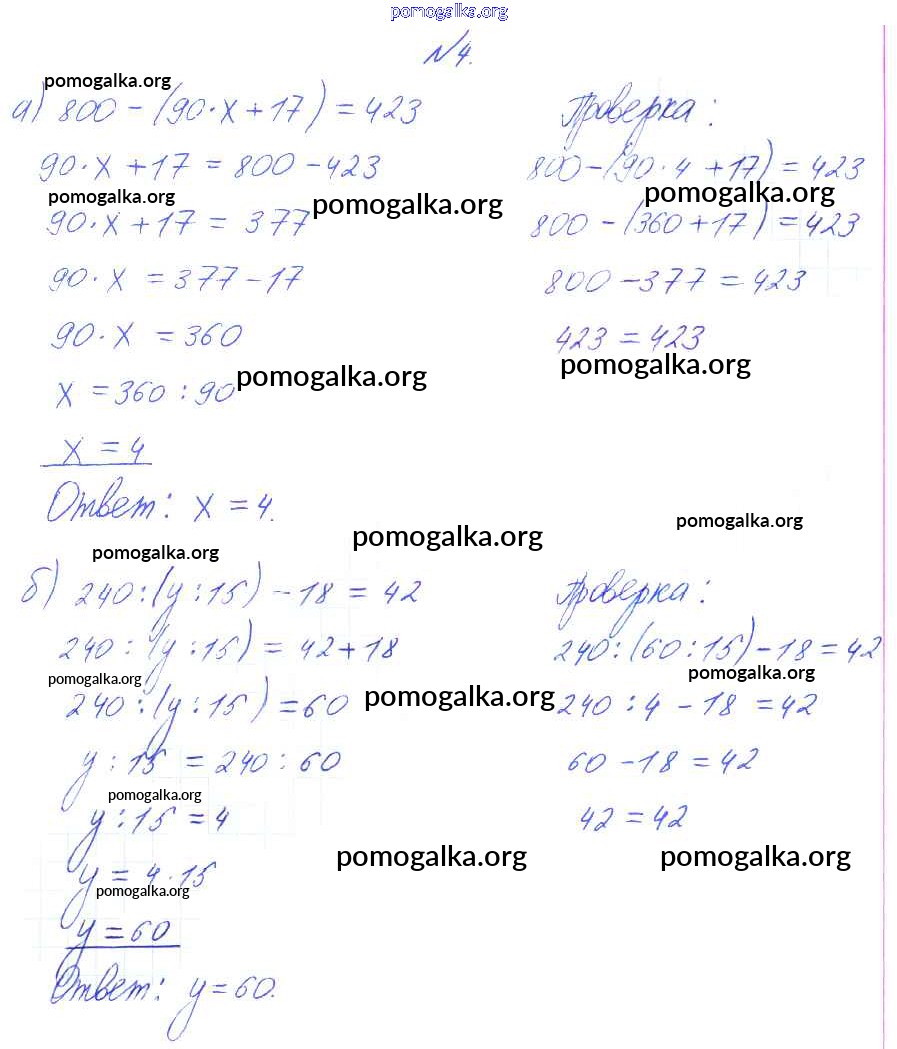 pomogalka.org
№4.
pomogalka.org
а) 800 - (90·x + 17) = 423
90·x + 17 = 800 - 423
pomogalka.org
pomogalka.org
90·x + 17 = 377
90·x = 377 - 17
90·x = 360
pomogalka.org
x = 360 : 90
x = 4
Ответ: x = 4.
Проверка:
800 - (90·4 + 17) = 423
pomogalka.org
800 - (360 + 17) = 423
800 - 377 = 423
423 = 423
pomogalka.org
pomogalka.org
pomogalka.org
pomogalka.org
б) 240 : (y : 15) - 18 = 42
240 : (y : 15) = 42 + 18
pomogalka.org
pomogalka.org
240 : (y : 15) = 60
y : 15 = 240 : 60
pomogalka.org
y : 15 = 4
pomogalka.org
y = 4·15
pomogalka.org
y = 60
Ответ: y = 60.
Проверка:
240 : (60 : 15) - 18 = 42
pomogalka.org
240 : 4 - 18 = 42
60 - 18 = 42
42 = 42
pomogalka.org